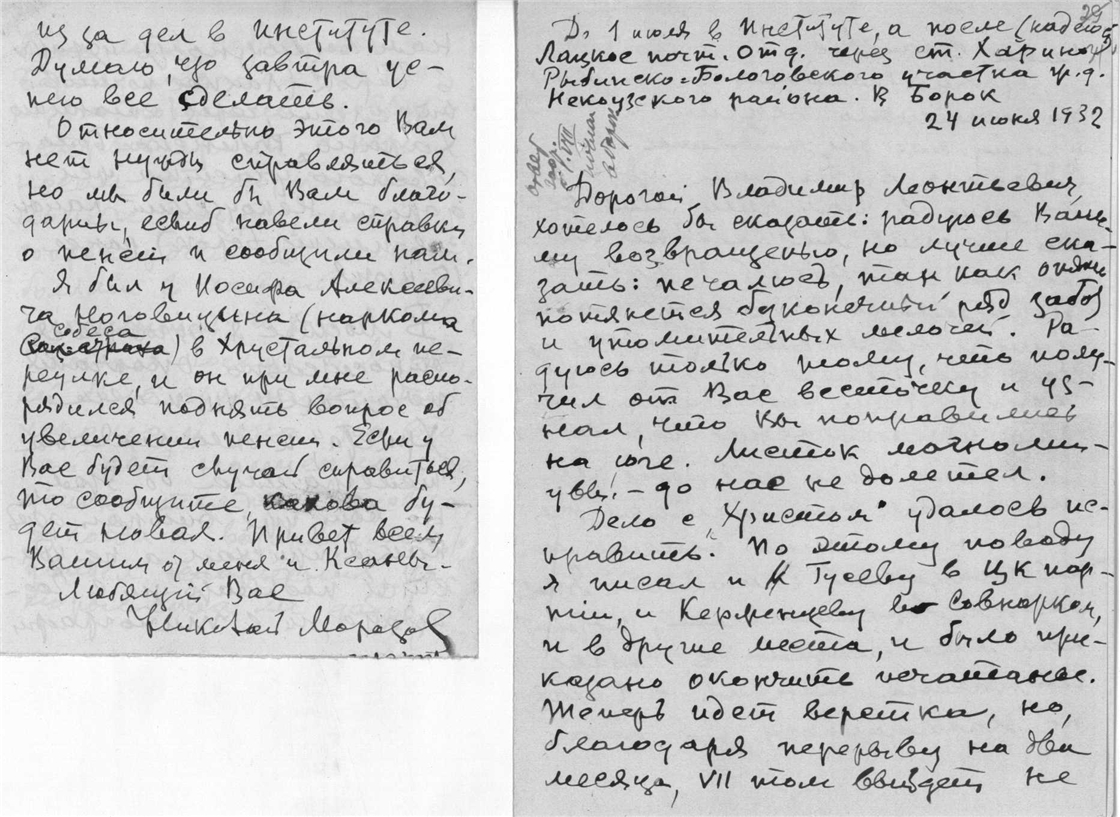 из за дел в институте.
Думаю, что завтра ус-
пею все сделать.
Относительно этого Вам
нет нужды справляться,
но мы были бы Вам благо-
дарны, еслиб навели справки
о пенсии и сообщили нам.
Я был у Иосифа Алексееви-
ча Наговицына (наркома
собеса
) в Хрустальном пе-
реулке, и он при мне распо-
рядился поднять вопрос об
увеличении пенсии. Если у
Вас будет случай справиться,
то сообщите, какова бу-
дет новая. Привет всем
Вашим от меня и Ксаны.
Любящий Вас
Николай Морозов
29
До 1 июля в Институте, а после (надеюсь)
Лацкое почт. отд. через ст. Харино
Рыбинско-Бологовского участка ж.д.
Некоузского района. В Борок
24 июня 1932
Дорогой Владимир Леонтьевич,
хотелось бы сказать: радуюсь Ваше-
му возвращенью, но лучше ска-
зать: печалюсь, так как опять
потянется бесконечный ряд забот
и утомительных мелочей. Ра-
дуюсь только тому, что полу-
чил от Вас весточку и уз-
нал, что Вы поправились
на юге. Листок
увы! – до нас не долетел.
Дело с „Христом“ удалось ис-
править. По этому поводу
я писал и к Гусеву в ЦК пар-
тии, и Керженцеву в Совнарком,
и в другие места, и было при-
казано окончить печатанье.
Теперь идет верстка, но,
благодаря перерыву на два
месяца, VII том выйдет не